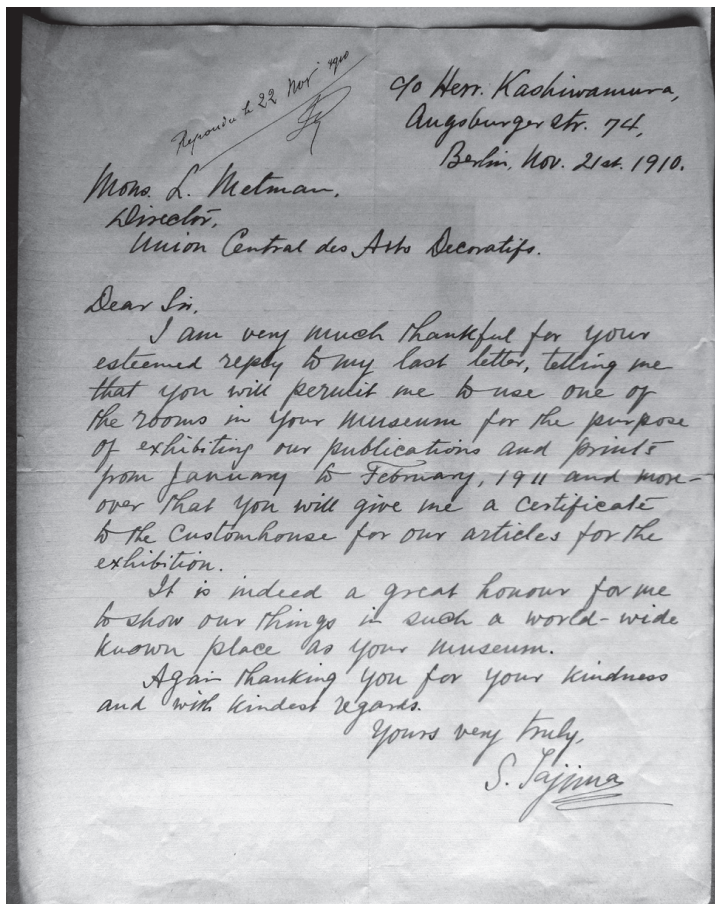 Repondu le 22 Nov 1910
c/o Herr. Kashiwamura,
Augsburger str. 74,
Berlin, Nov. 21st. 1910.
Mons. L. Metman,
Director,
Union Central des Arts Decoratifs.
Dear Sir.
I am very much thankful for your
esteemed reply to my last letter, telling me
that you will permit me to use one of
the rooms in your museum for the purpose
of exhibiting our publications and prints
from January to February, 1911 and more-
over that you will give me a certificate
to the customhouse for our articles for the
exhibition.
It is indeed a great honour for me
to show our things in such a world-wide
known place as your museum.
Again thanking you for your kindness
and with kindest regards.
Yours very truly,
S. Tajima